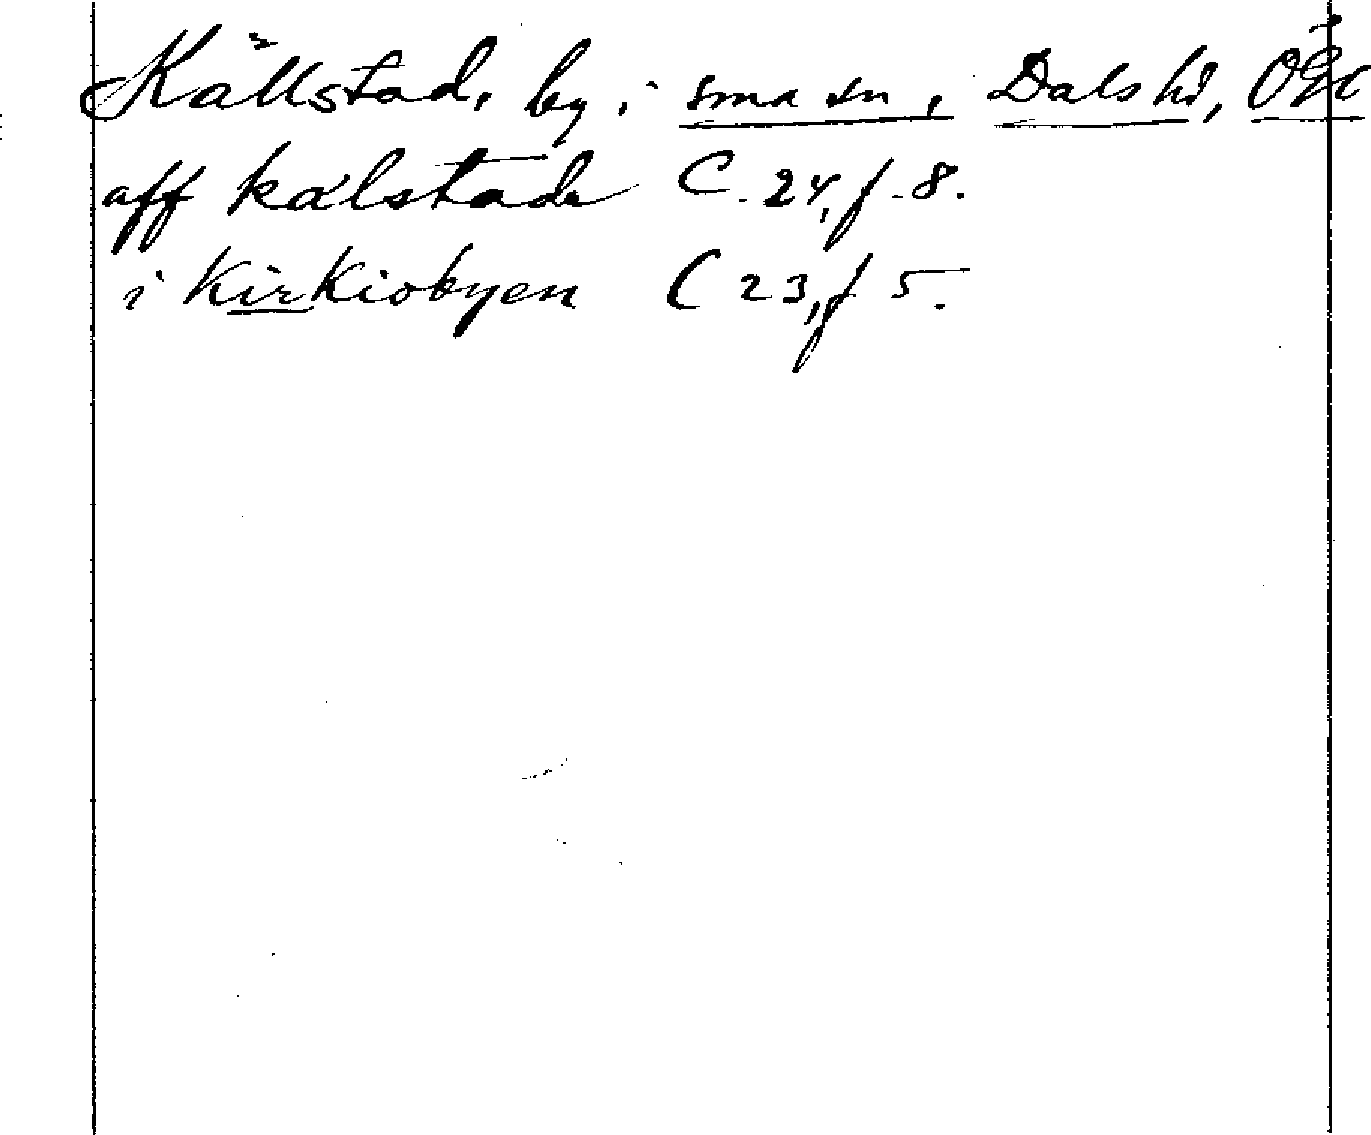 Källstad, by i sma sn, Dals hd, ÖGl
aff kalstade C. 24, f. 8.
i kirkiobyen C 23, f 5.